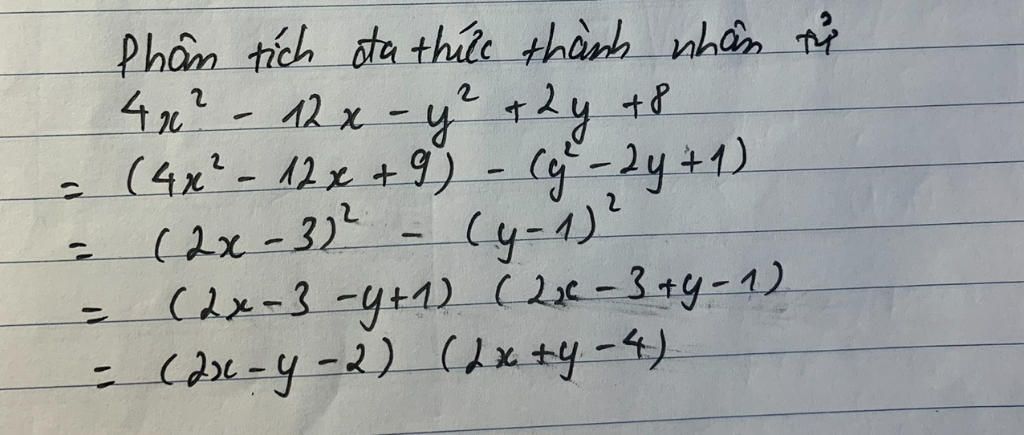 Phân tích đa thức thành nhân tử
4x² - 12x - y² + 2y + 8
= (4x² - 12x + 9) - (y² - 2y + 1)
= (2x - 3)² - (y - 1)²
= (2x - 3 - y + 1) (2x - 3 + y - 1)
= (2x - y - 2) (2x + y - 4)